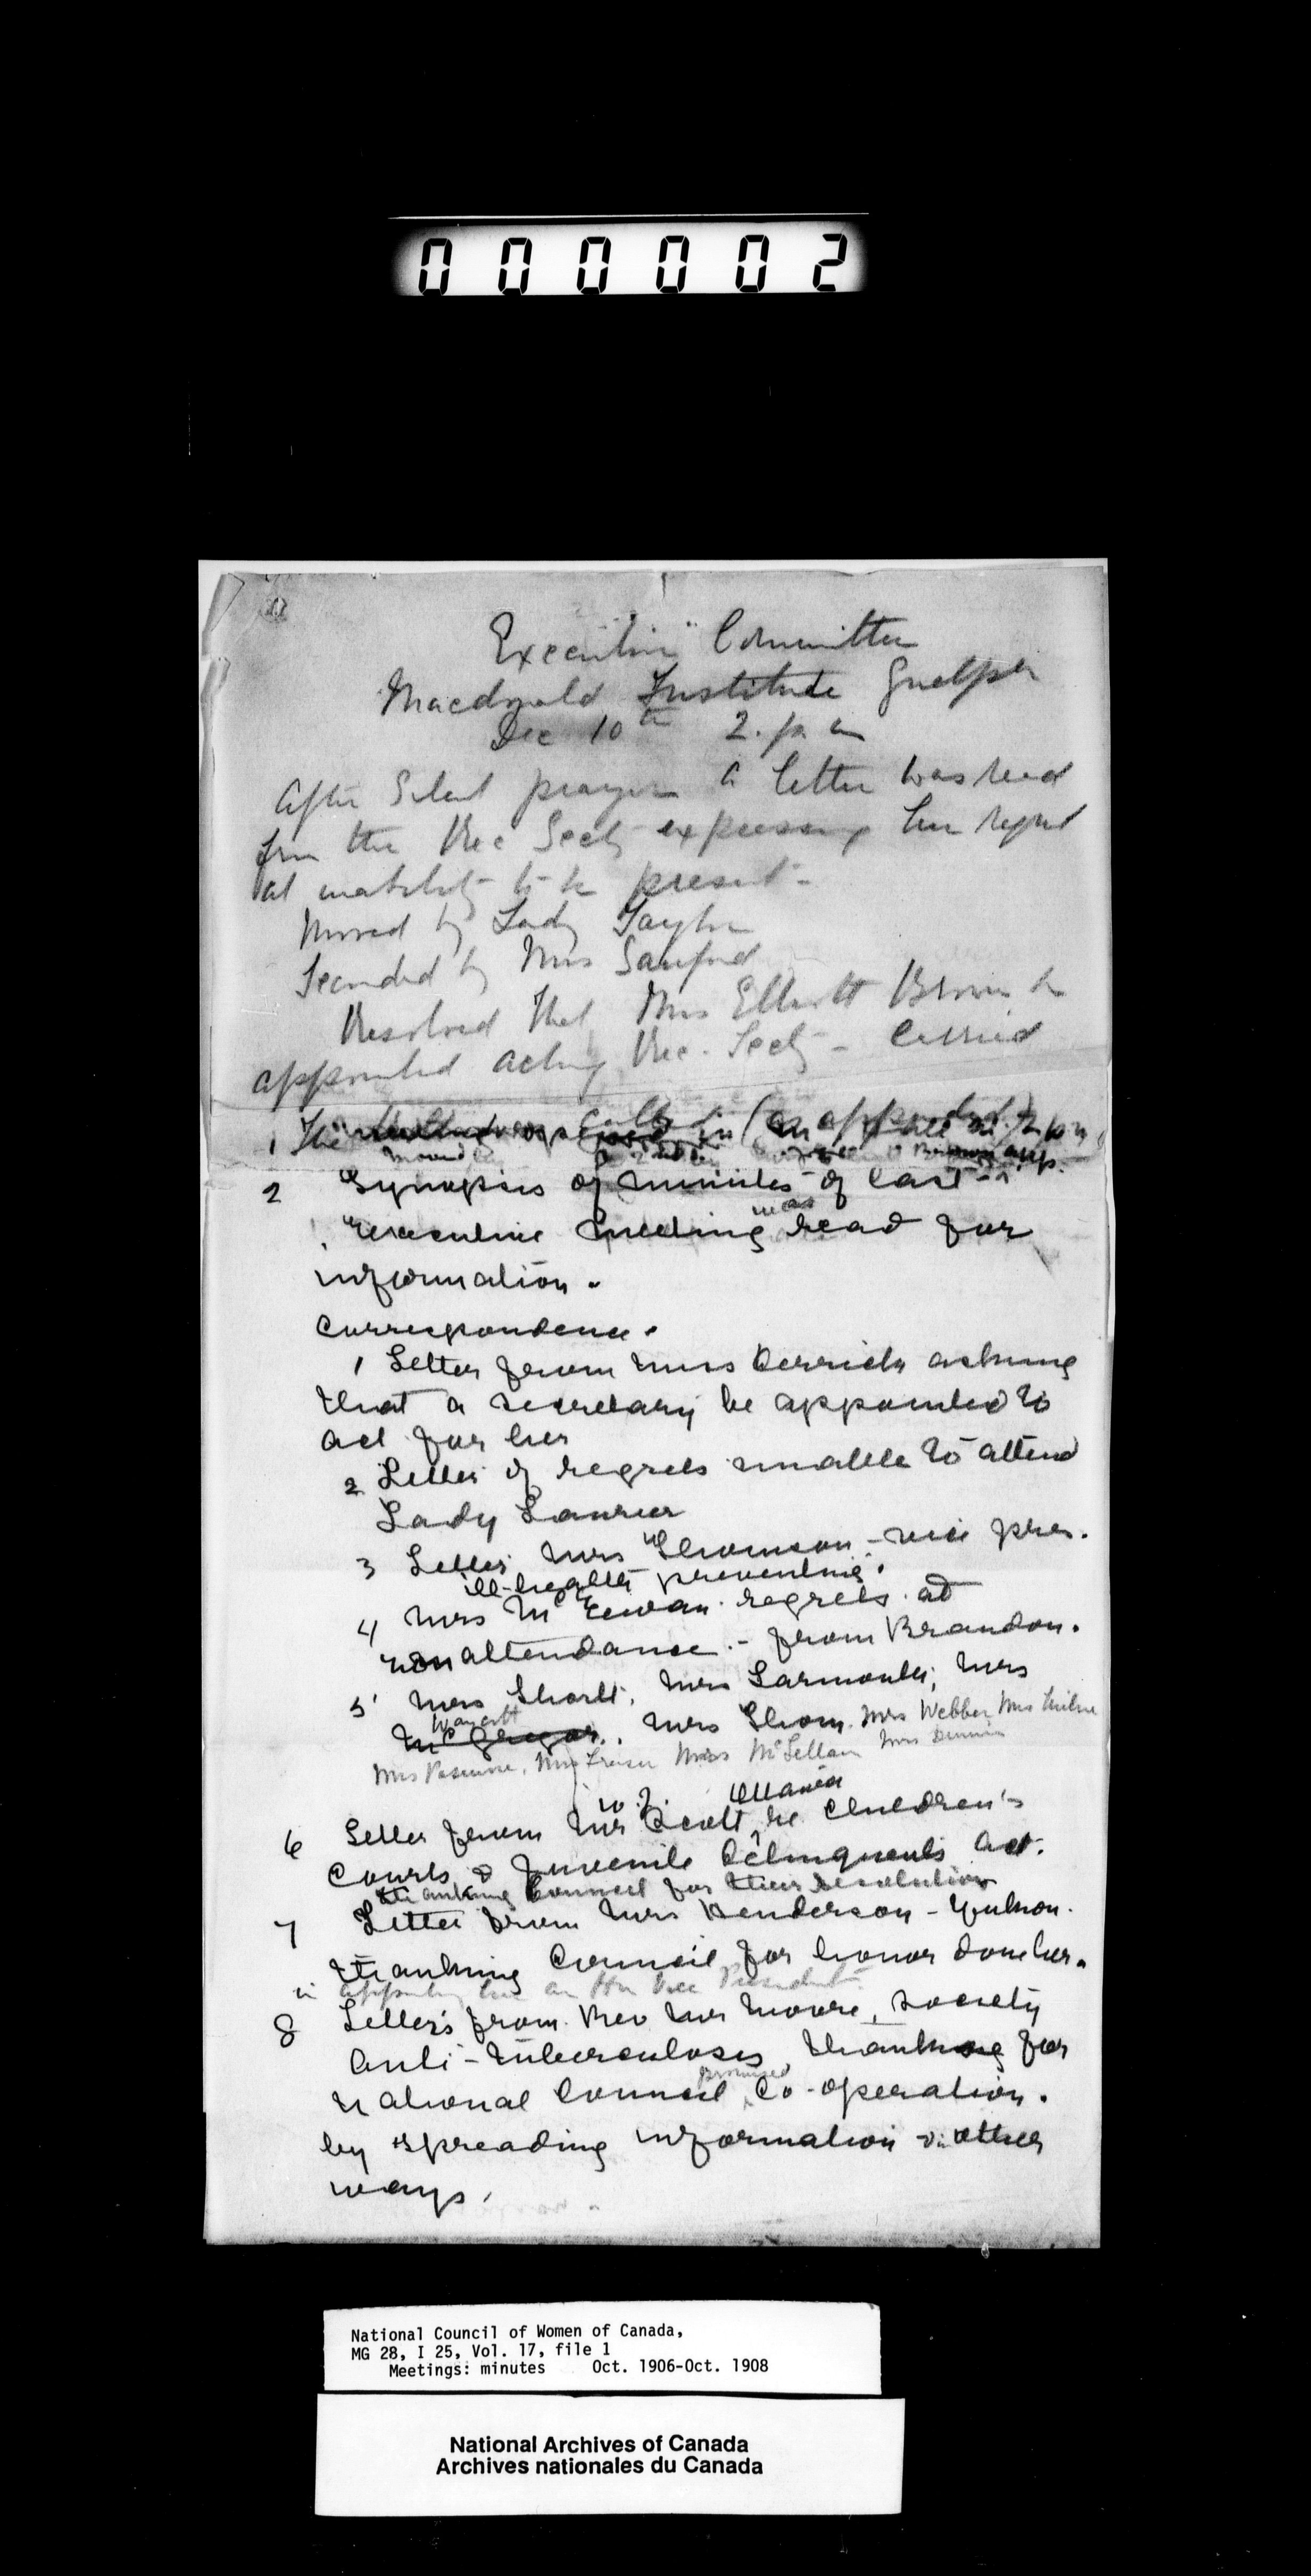 000002
Executive Committee
Macdonald Institute Guelph
Dec 10th 2. p m
After Silent prayer a letter was read
from the Rec Secty expressing her regret
at inability to be present -
Moved by Lady Taylor
Seconded by Mrs Sanford
Resolved that Mrs Elliott Brown be
appointed acting Rec. Secty - Carried
1 The
moved by
2 Synopsis of minutes of last
Executive meeting was read for
information.
Correspondence.
1 Letter from Miss Derrick asking
that a secretary be appointed to
act for her
2 Letter of regrets unable to attend
Lady Laurier
3 Letter Mrs Thomson - vice pres.
ill-health preventing.
4 Mrs McEwan regrets at
non attendance - from Brandon.
5 Mrs Shortt, Mrs Larmonth, Mrs
McGregor, Mrs Thom. Mrs Webber Mrs
Mrs Fraser Miss McLellan Mrs
6 Letter from Mr W. L. Scott, Ottawa re Children's
Courts & Juvenile Delinquents Act.
thanking Council for their resolution
7 Letter from Mrs Henderson - Yukon.
thanking Council for honor done her.
in appointing her an Hon Vice President
8 Letters from Rev Mr Moore, society
Anti-tuberculosis, thanking for
National Council promised Co-operation.
by spreading information & other
ways.
National Council of Women of Canada,
MG 28, I 25, Vol. 17, file 1
Meetings: minutes Oct. 1906-Oct. 1908
National Archives of Canada
Archives nationales du Canada